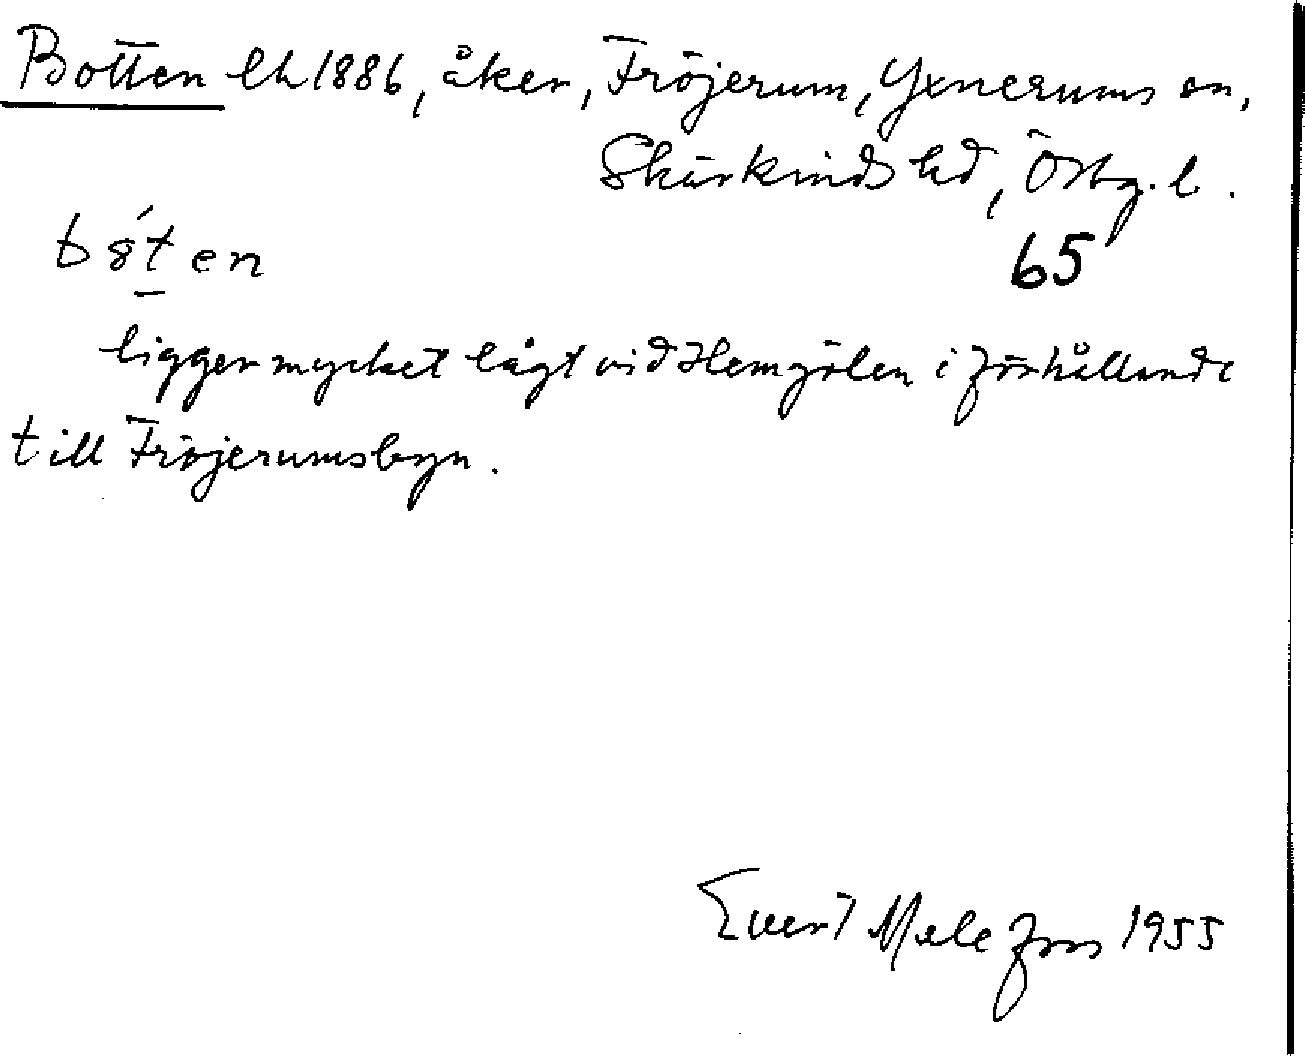 Botten lh 1886, åker, Fröjerum, Yxnerums sn,
Skärkinds hd, Östg. l.
bót̲en
65
ligger mycket lågt vid Hemgölen i förhållande
till Fröjerumsbyn.
Evert Melefors 1955